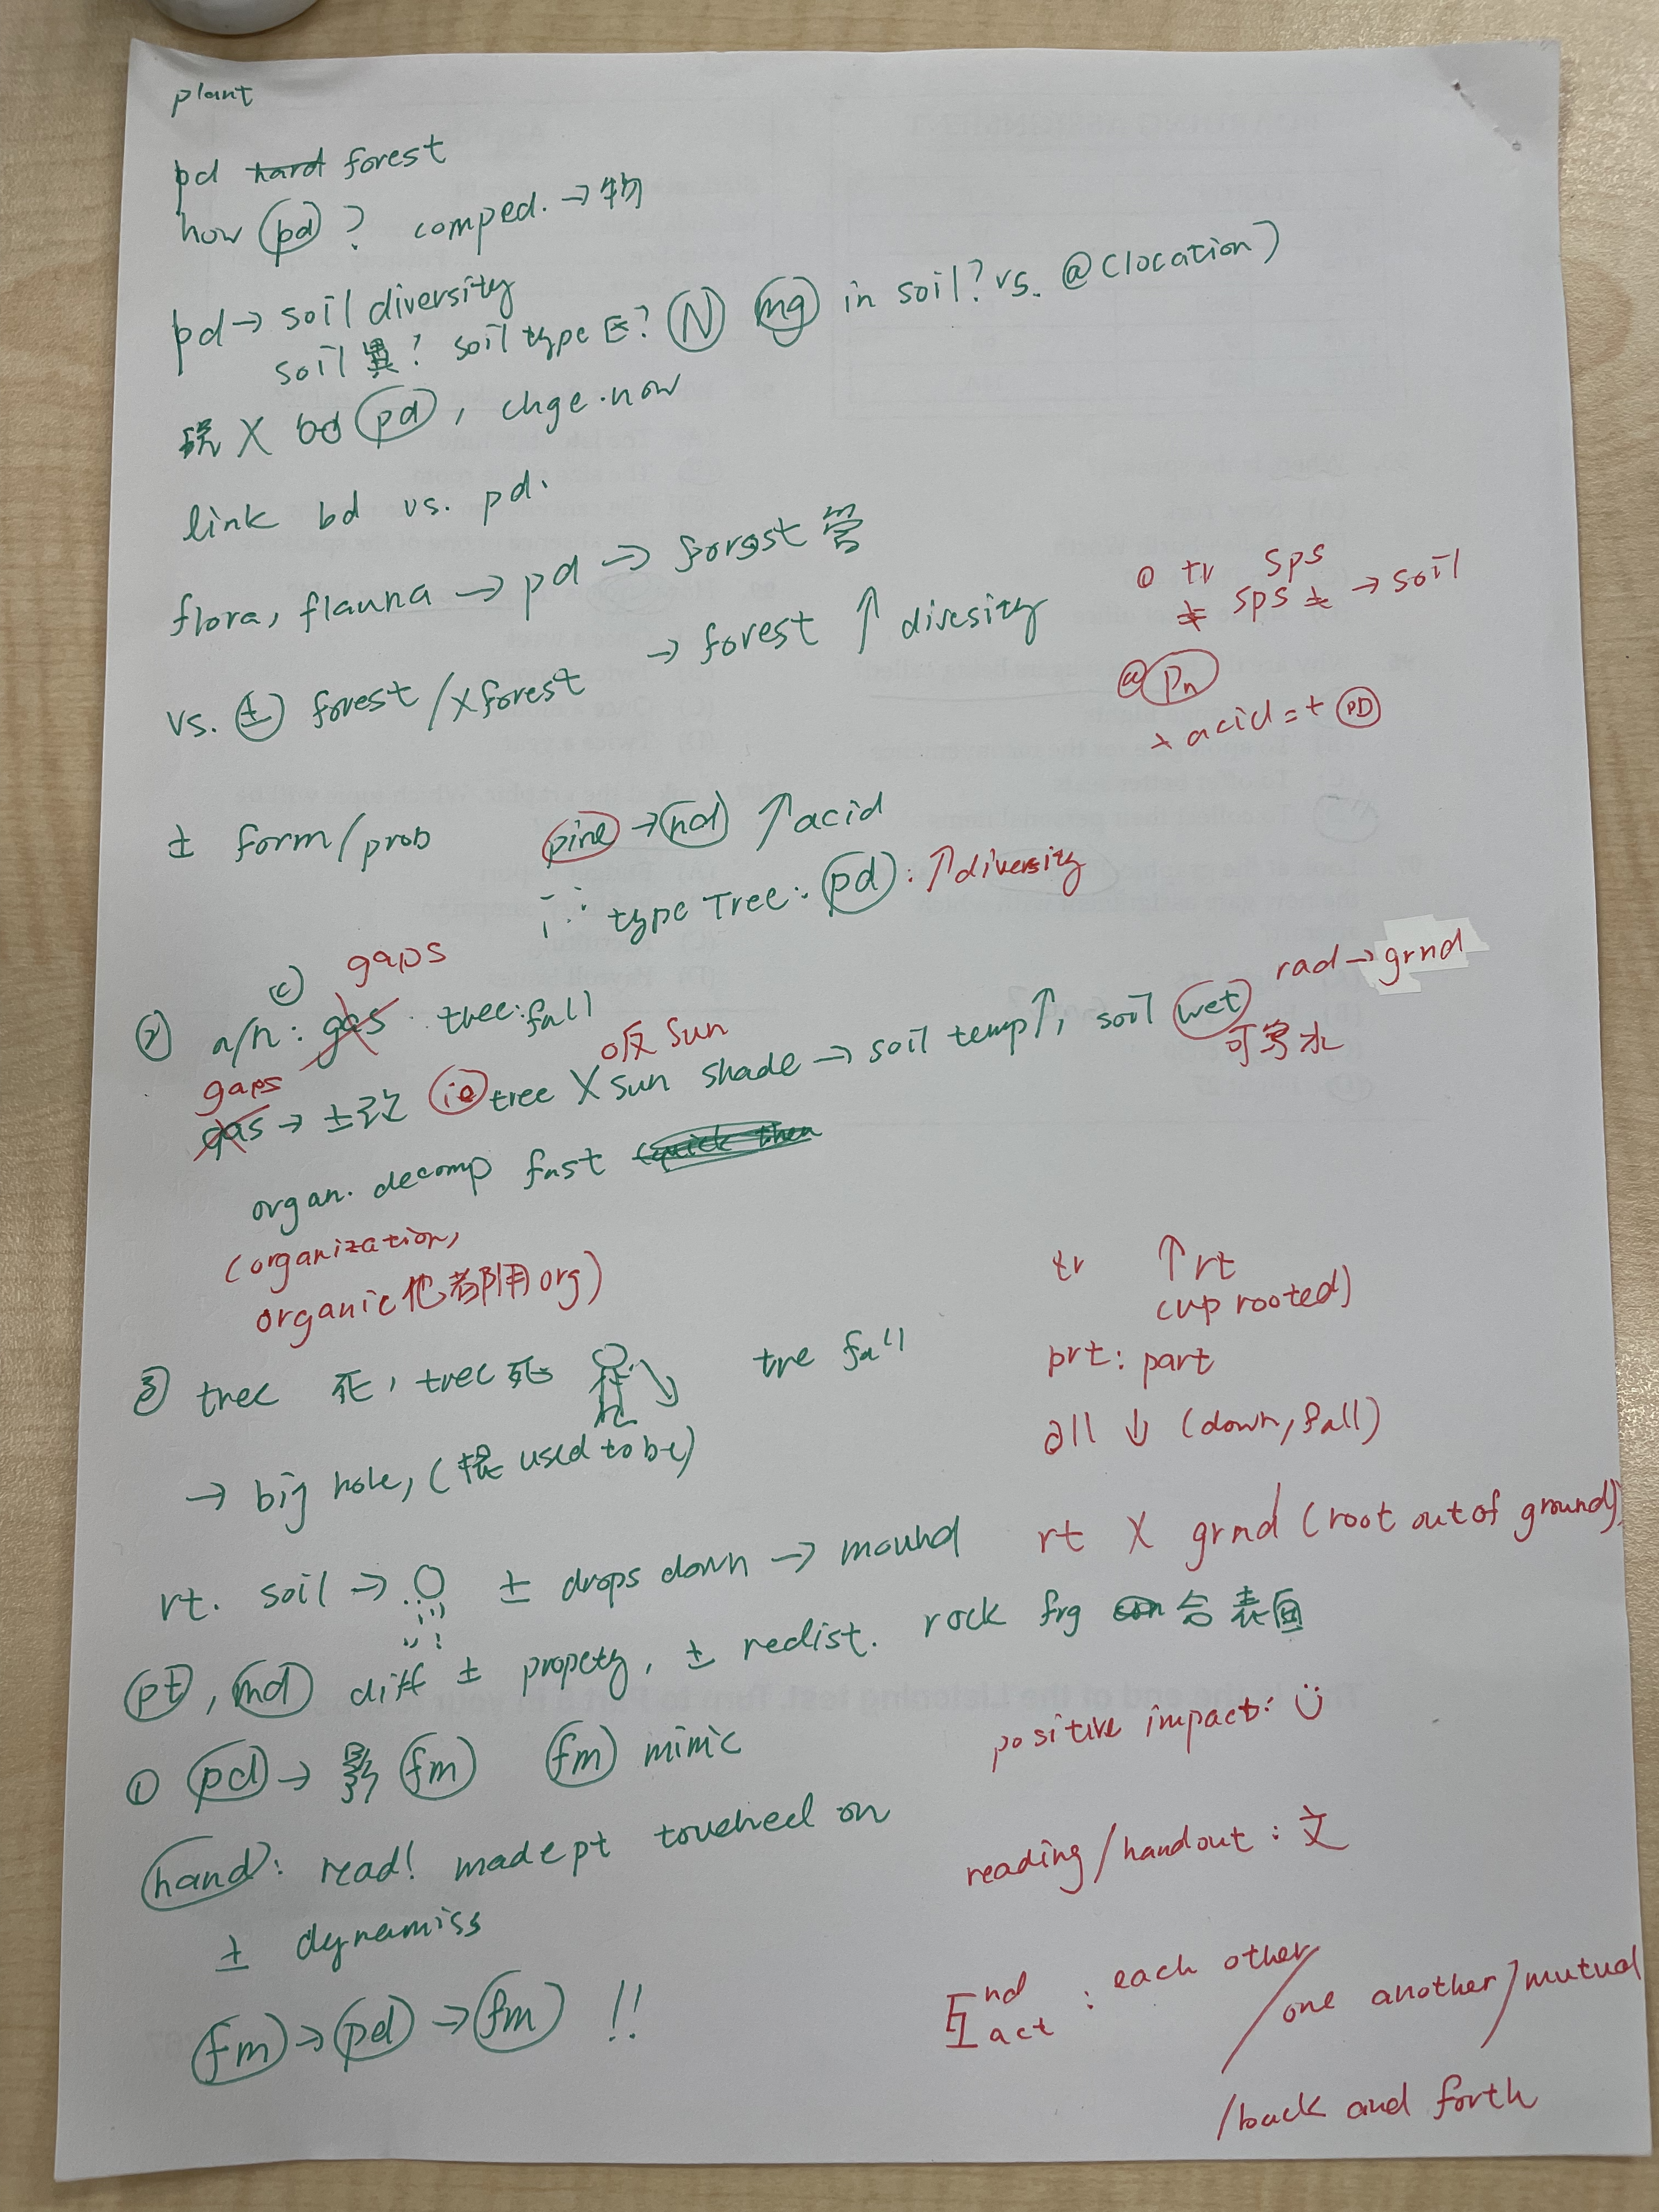 plant
pd hard forest
how pd ? comped. → 物
pd → soil diversity
soil 異? soil type 在? N mg in soil? vs. @ (location)
說 X pd, chge. now
link bd vs. pd.
flora, flauna → pd → forest 當
→ forest ↑ divesity
vs. 土 forest / X forest
① tr sps
≠ sps ≠ → soil
@ Pn
→ acid = + PD
土 form / prob
pine → nd ↑ acid
i ∴ type Tree: pd: ↑ diversity
② a/n: gas (c) gaps tree: fall
rad → grnd
gas gaps → 土改 ie tree X sun shade → soil temp ↑, soil wet
吸 sun
可寫水
organ. decomp fast quick then
(organization,
organic 他都用 org)
tr ↑ rt
(up rooted)
③ tree 死, tree 死 tre fall
prt: part
all ↓ (down, fall)
→ big hole, (根 used to be)
rt. soil → 土 drops down → mound
rt X grnd (root out of ground)
pt, md diff 土 propety, 土 redist. rock frg 合 表面
positive impact: ☺
① pd → 影 fm fm mimic
hand: read! made pt touched on
reading / handout : 文
土 dynamiss
fm → pd → fm !!
互 nd act : each other / one another / mutual
/ back and forth